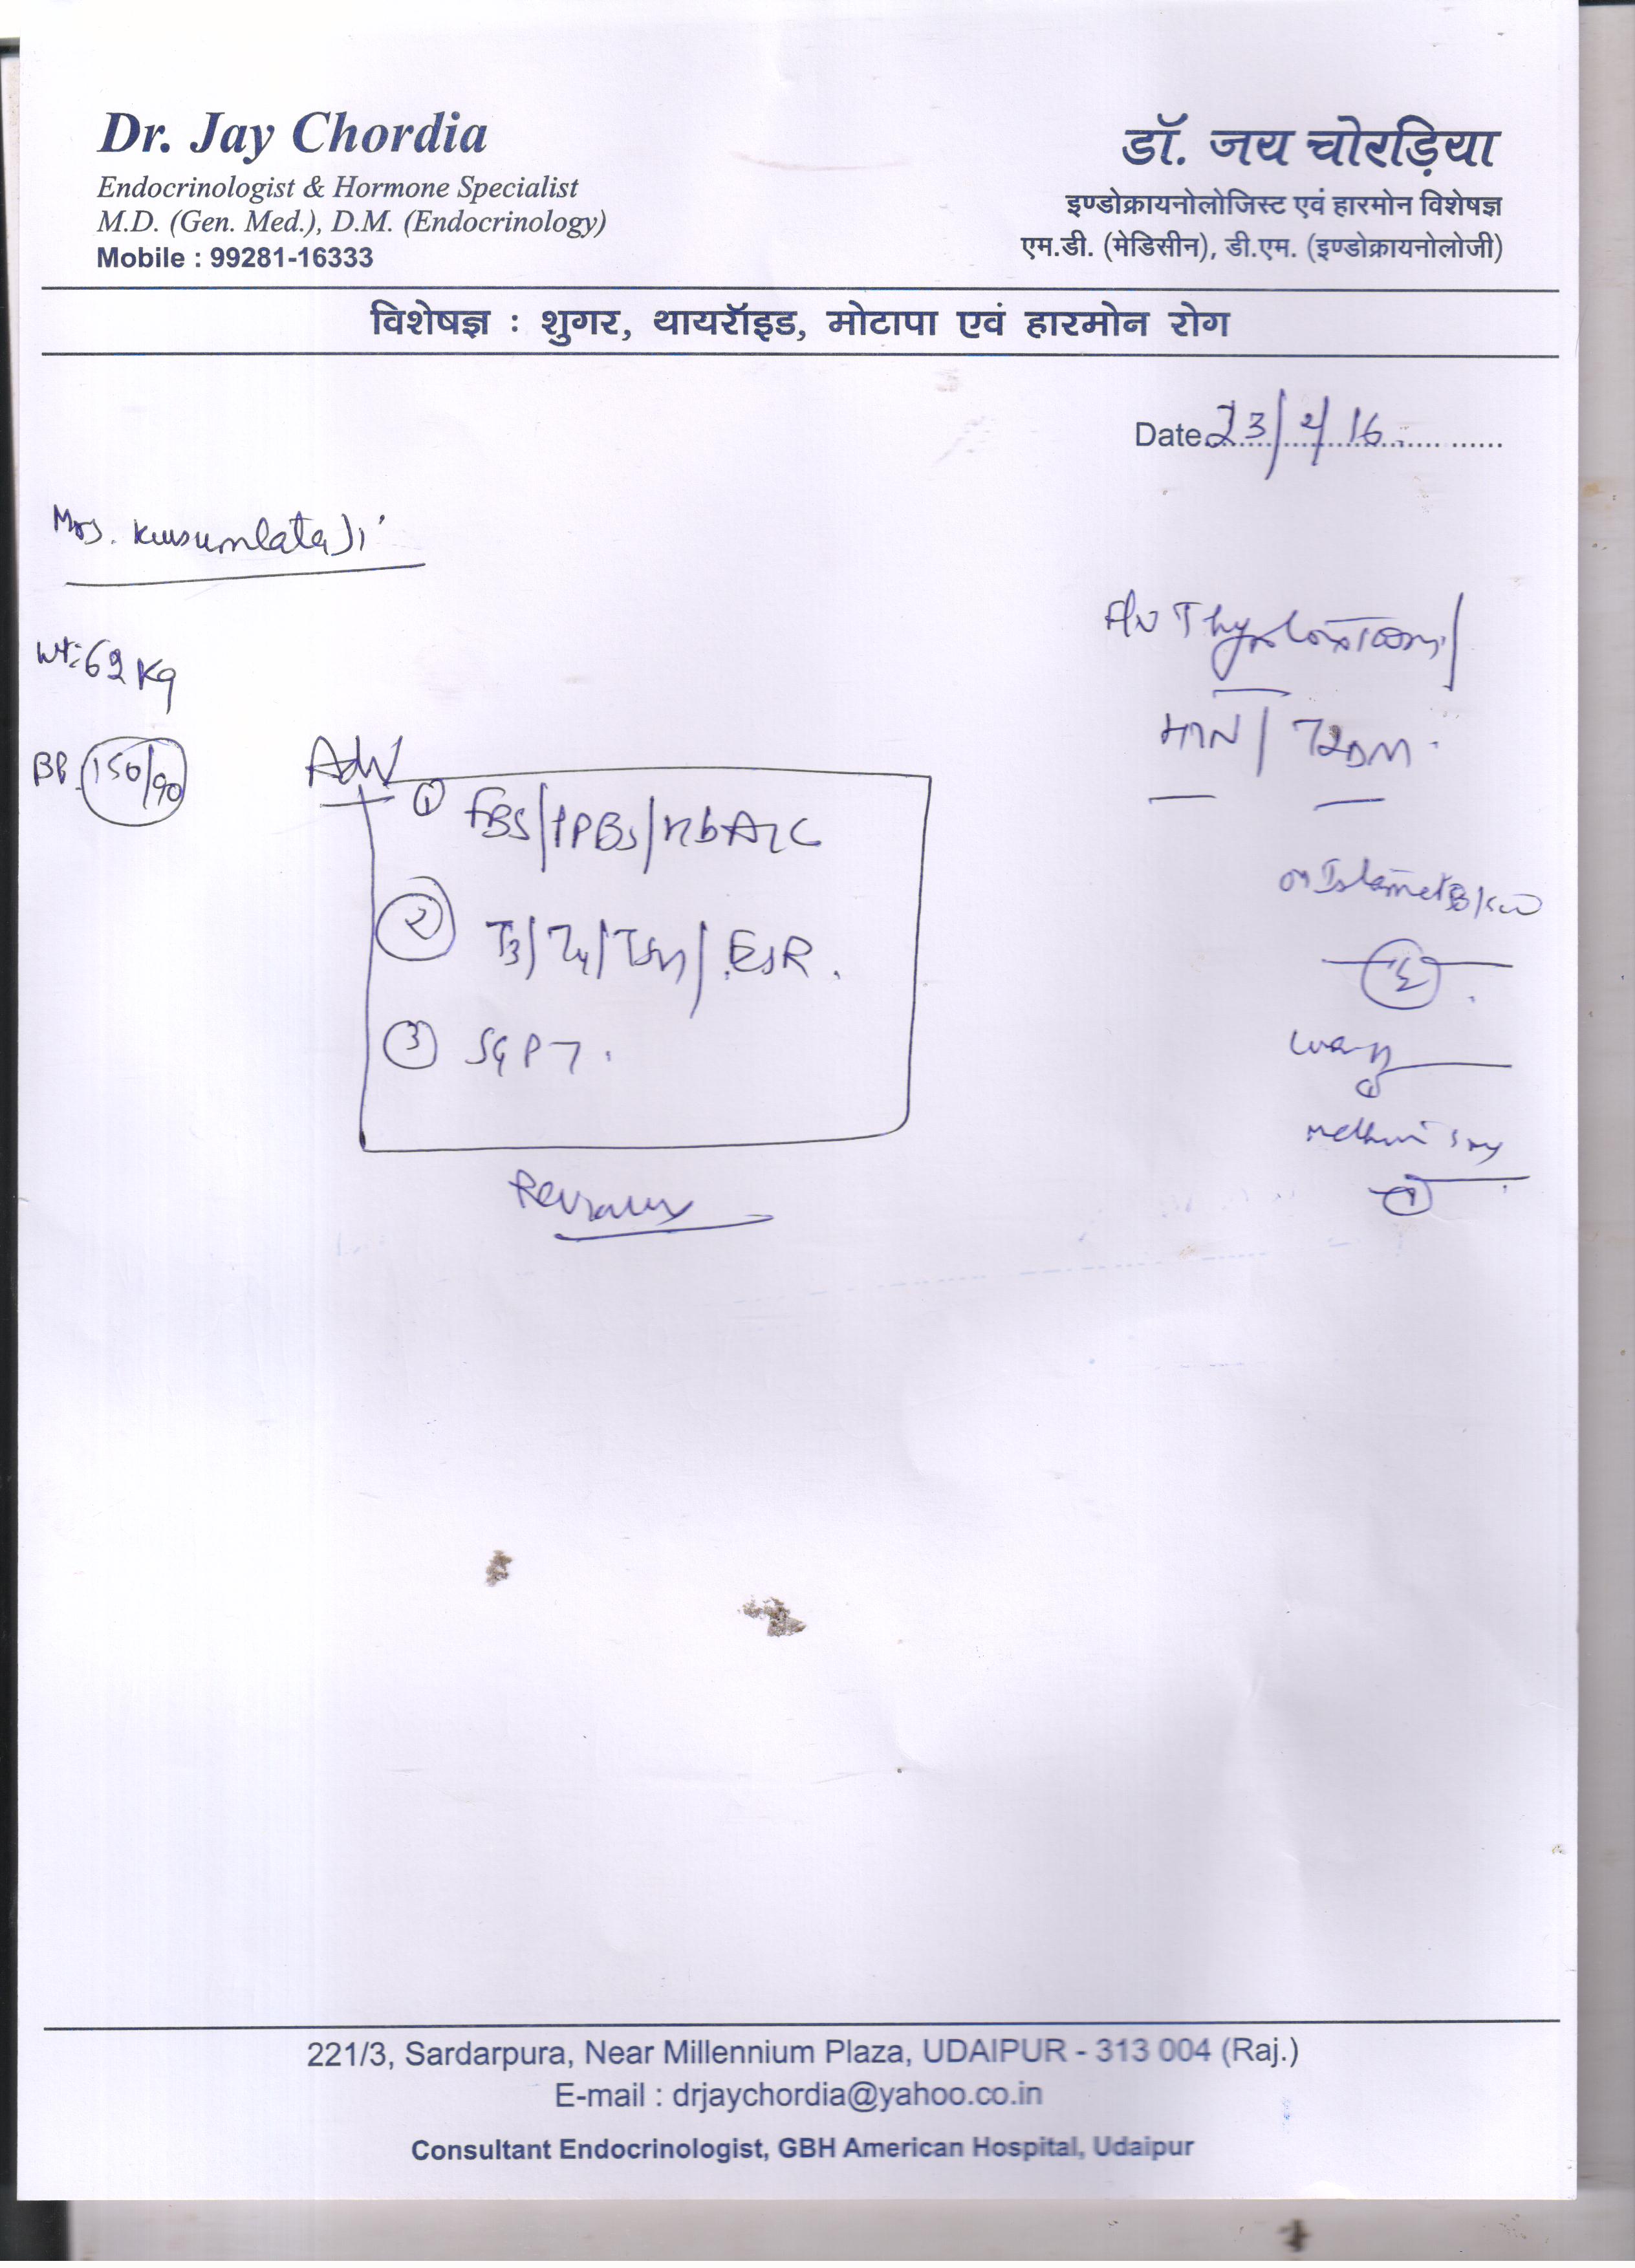 Dr. Jay Chordia
Endocrinologist & Hormone Specialist
M.D. (Gen. Med.), D.M. (Endocrinology)
Mobile : 99281-16333
डॉ. जय चोरड़िया
इण्डोक्रायनोलोजिस्ट एवं हारमोन विशेषज्ञ
एम.डी. (मेडिसीन), डी.एम. (इण्डोक्रायनोलोजी)
विशेषज्ञ : शुगर, थायरॉइड, मोटापा एवं हारमोन रोग
Date 23/2/16
Mrs. Kusumlata Ji
Wt: 62 Kg
BP. 150/90
HTN / T2DM
Adv
① FBS/PPBS/HbA1C
② T3/T4/TSH/ESR.
③ SGPT.
Review
221/3, Sardarpura, Near Millennium Plaza, UDAIPUR - 313 004 (Raj.)
E-mail : drjaychordia@yahoo.co.in
Consultant Endocrinologist, GBH American Hospital, Udaipur